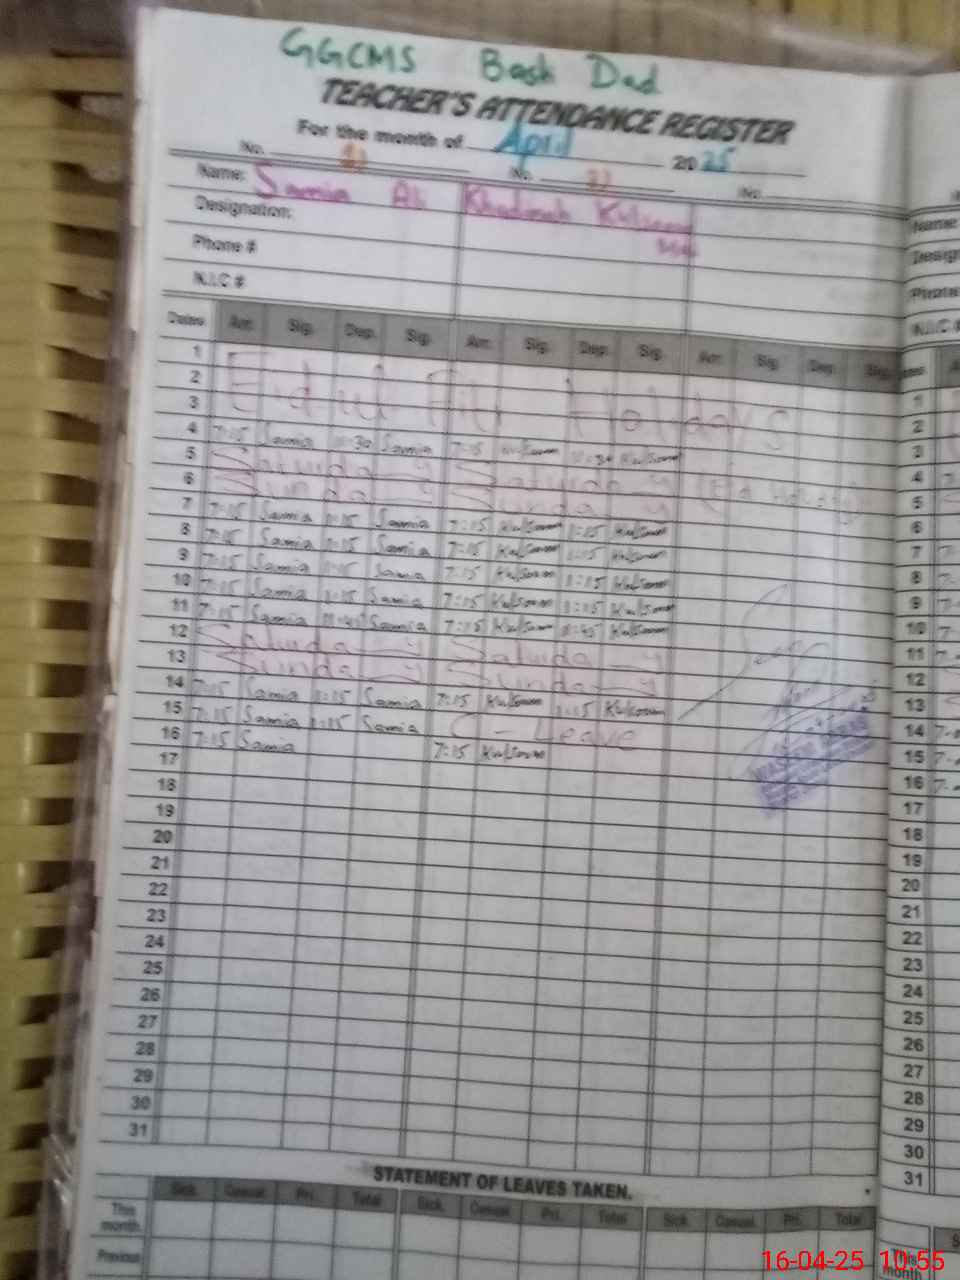 GGCMS Bash Dad
TEACHER'S ATTENDANCE REGISTER
For the month of April 2025
No. No. No.
Name: Samia Ali Khadimah Kulsoom
Designation:
Phone #
N.I.C #
Dates Arr. Sig. Dep. Sig. Arr. Sig. Dep. Sig. Arr. Sig. Dep. Sig.
1
2 Eid ul Fitr Holidays
3
4 7:15 Samia 11:30 Samia 7:15 Kulsoom 11:30 Kulsoom
5 Saturday Saturday (Eid Holiday)
6 Sunday Sunday
7 7:15 Samia 1:15 Samia 7:15 Kulsoom 1:15 Kulsoom
8 7:15 Samia 1:15 Samia 7:15 Kulsoom 1:15 Kulsoom
9 7:15 Samia 1:15 Samia 7:15 Kulsoom 1:15 Kulsoom
10 7:15 Samia 1:15 Samia 7:15 Kulsoom 1:15 Kulsoom
11 7:15 Samia 11:45 Samia 7:15 Kulsoom 11:45 Kulsoom
12 Saturday Saturday
13 Sunday Sunday
14 7:15 Samia 1:15 Samia 7:15 Kulsoom 1:15 Kulsoom
15 7:15 Samia 1:15 Samia C - Leave
16 7:15 Samia 7:15 Kulsoom
17
18
19
20
21
22
23
24
25
26
27
28
29
30
31
STATEMENT OF LEAVES TAKEN.
Sick. Casual. Pri. Total Sick. Casual. Pri. Total Sick. Casual. Pri. Total
This month.
Previous
Name
Design
Phone
N.I.C #
1
2
3
4
5
6
7
8
9
10
11
12
13
14
15
16
17
18
19
20
21
22
23
24
25
26
27
28
29
30
31
This month
16-04-25 10:55